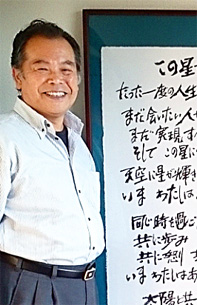 この星
たった一度の人生
まだ会いたい人
まだ実現す
そして この星に
天空に星が輝き
いま わたしは
同じ時を
共に歩み
共に
いま わたしはあ
太陽と共